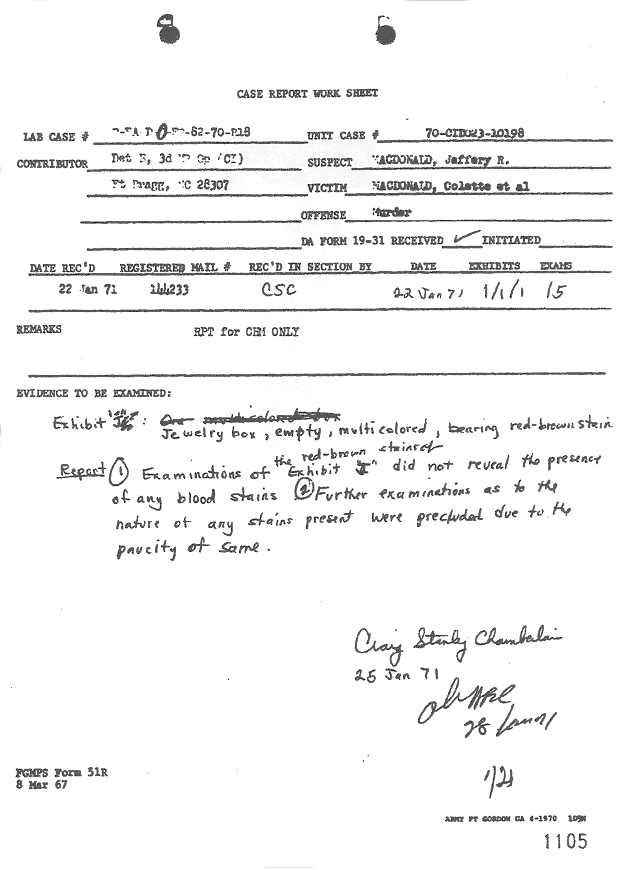 CASE REPORT WORK SHEET
LAB CASE # -62-70-R18 UNIT CASE # 70-CID023-10198
CONTRIBUTOR Det B, 3d MP Gp (CI) SUSPECT MACDONALD, Jeffery R.
Ft Bragg, NC 28307 VICTIM MACDONALD, Colette et al
OFFENSE Murder
DA FORM 19-31 RECEIVED ✓ INITIATED
DATE REC'D REGISTERED MAIL # REC'D IN SECTION BY DATE EXHIBITS EXAMS
22 Jan 71 144233 CSC 22 Jan 71 1/1/1 15
REMARKS RPT for CHM ONLY
EVIDENCE TO BE EXAMINED:
Exhibit "J" : One multicolored box
Jewelry box, empty, multicolored, bearing red-brown stain
the red-brown stains of
Report ① Examinations of Exhibit "J" did not reveal the presence
of any blood stains ② Further examinations as to the
nature of any stains present were precluded due to the
paucity of same.
Craig Stanley Chamberlain
25 Jan 71
28 Jan 71
1/21
FGMPS Form 51R
8 Mar 67
ARMY FT GORDON GA 4-1970
1105